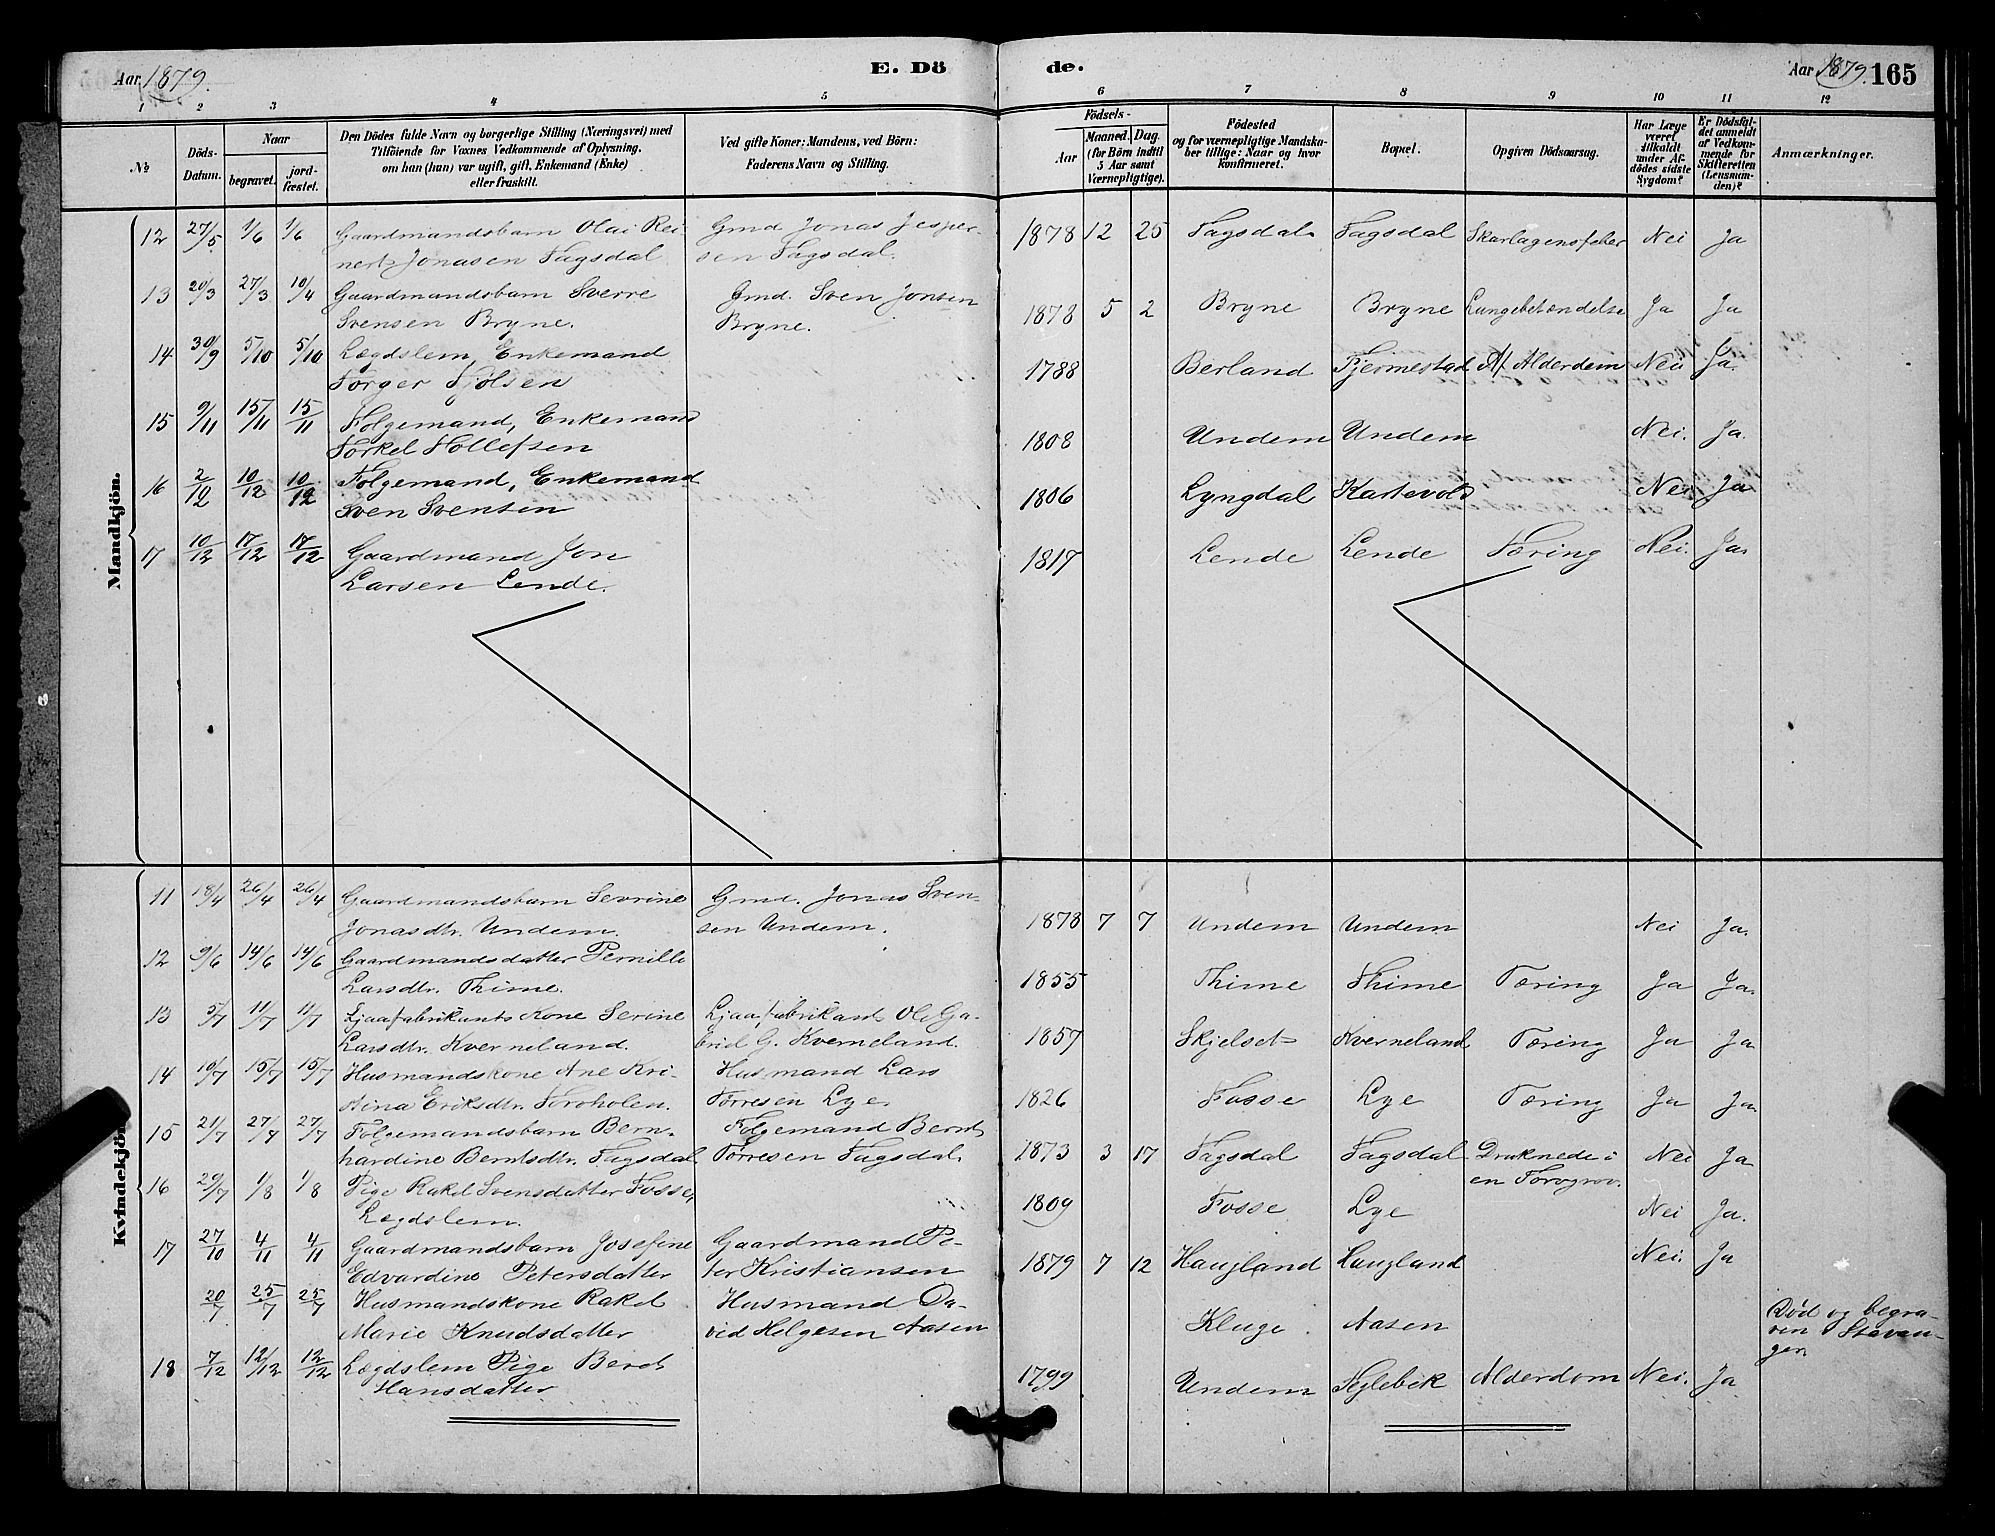 Aar 1879. E. Dö de. Aar 1879. 165
1 2 3 4 5 6 7 8 9 10 11 12
No Döds-Datum. Naar begravet. jord-fæstet. Den Dödes fulde Navn og borgerlige Stilling (Næringsvei) med Tilföiende for Voxnes Vedkommende af Oplysning, om han (hun) var ugift, gift, Enkemand (Enke) eller fraskilt. Ved gifte Koner: Mandens, ved Börn: Faderens Navn og Stilling. Födsels- Aar Maaned. Dag. (for Börn indtil 5 Aar samt Værnepligtige). Födested og for værnepligtige Mandskaber tillige: Naar og hvor konfirmeret. Bopæl. Opgiven Dödsaarsag. Har Læge været tilkaldt under Afdödes sidste Sygdom? Er Dödsfaldet anmeldt af Vedkommende for Skifteretten (Lensmanden)? Anmærkninger.
Mandkjön.
12 27/5 1/6 1/6 Gaardmandsbarn Olai Rei- Gmd Jonas Jesper- 1878 12 25 Fagsdal Fagsdal Skarlagensfeber Nei Ja
nert Jonasen Fagsdal sen Fagsdal.
13 20/3 27/3 10/4 Gaardmandsbarn Sverre Gmd. Sven Jonsen 1878 5 2 Bryne Bryne Lungebetændelse Ja Ja
Svensen Bryne. Bryne.
14 30/9 5/10 5/10 Lægdslem, Enkemand 1788 Berland Tjermestad Af Alderdom Nei Ja.
Torger Fjølsen
15 9/11 15/11 15/11 Folgemand, Enkemand 1808 Undem Undem Nei. Ja.
Torkel Tollefsen
16 2/12 10/12 10/12 Folgemand, Enkemand 1806 Lyngdal Kartevold Nei Ja
Sven Svensen
17 10/12 17/12 17/12 Gaardmand Jon 1817 Lende Lende Tæring Nei. Ja.
Larsen Lende.
Kvindekjön.
11 18/4 26/4 26/4 Gaardmandsbarn Sevrine Gmd. Jonas Sven- 1878 7 7 Undem Undem Nei Ja.
Jonasdtr. Undem. sen Undem.
12 9/6 14/6 14/6 Gaardmandsdatter Pernille 1855 Thime Thime Tæring Ja Ja.
Larsdtr. Thime.
13 5/7 11/7 11/7 Ljaafabrikants Kone Serine Ljaafabrikant Ole Ga- 1857 Skjelset Kverneland Tæring Ja Ja
Larsdtr. Kverneland. briel G. Kverneland.
14 10/7 15/7 15/7 Husmandskone Ane Kri- Husmand Lars 1826 Fosse Lye Tæring Ja Ja.
stina Eriksdtr. Torholen. Torresen Lye.
15 21/7 27/7 27/7 Folgemandsbarn Bern- Folgemand Bernt 1873 3 17 Fagsdal Fagsdal Druknede i Nei Ja
hardine Berntsdtr. Fagsdal. Torresen Fagsdal. en Torvgrov.
16 29/7 1/8 1/8 Pige Rakel Svensdatter Fosse, 1809 Fosse Lye Nei Ja.
Lægdslem.
17 27/10 4/11 4/11 Gaardmandsbarn Josefine Gaardmand Pe- 1879 7 12 Haugland Haugland Nei. Ja
Edvardine Petersdatter ter Kristiansen
20/7 25/7 25/7 Husmandskone Rakel Husmand Da- Kluge. Aasen Død og begra-
Marie Knudsdatter vid Helgesen Aasen ven i Stavan-
ger
18 7/12 12/12 12/12 Lægdslem Pige Beret 1799 Undem Teglebek Alderdom Nei. Ja
Hansdatter